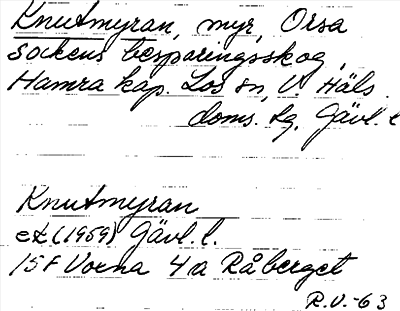 Knutmyran, myr, Orsa
sockens besparingsskog,
Hamra kap. Los sn, V. Häls.
doms. sg. Gävl. l
Knutmyran
ek (1959) Gävl. l.
15F Vorna 4a Råberget
R.V.-63